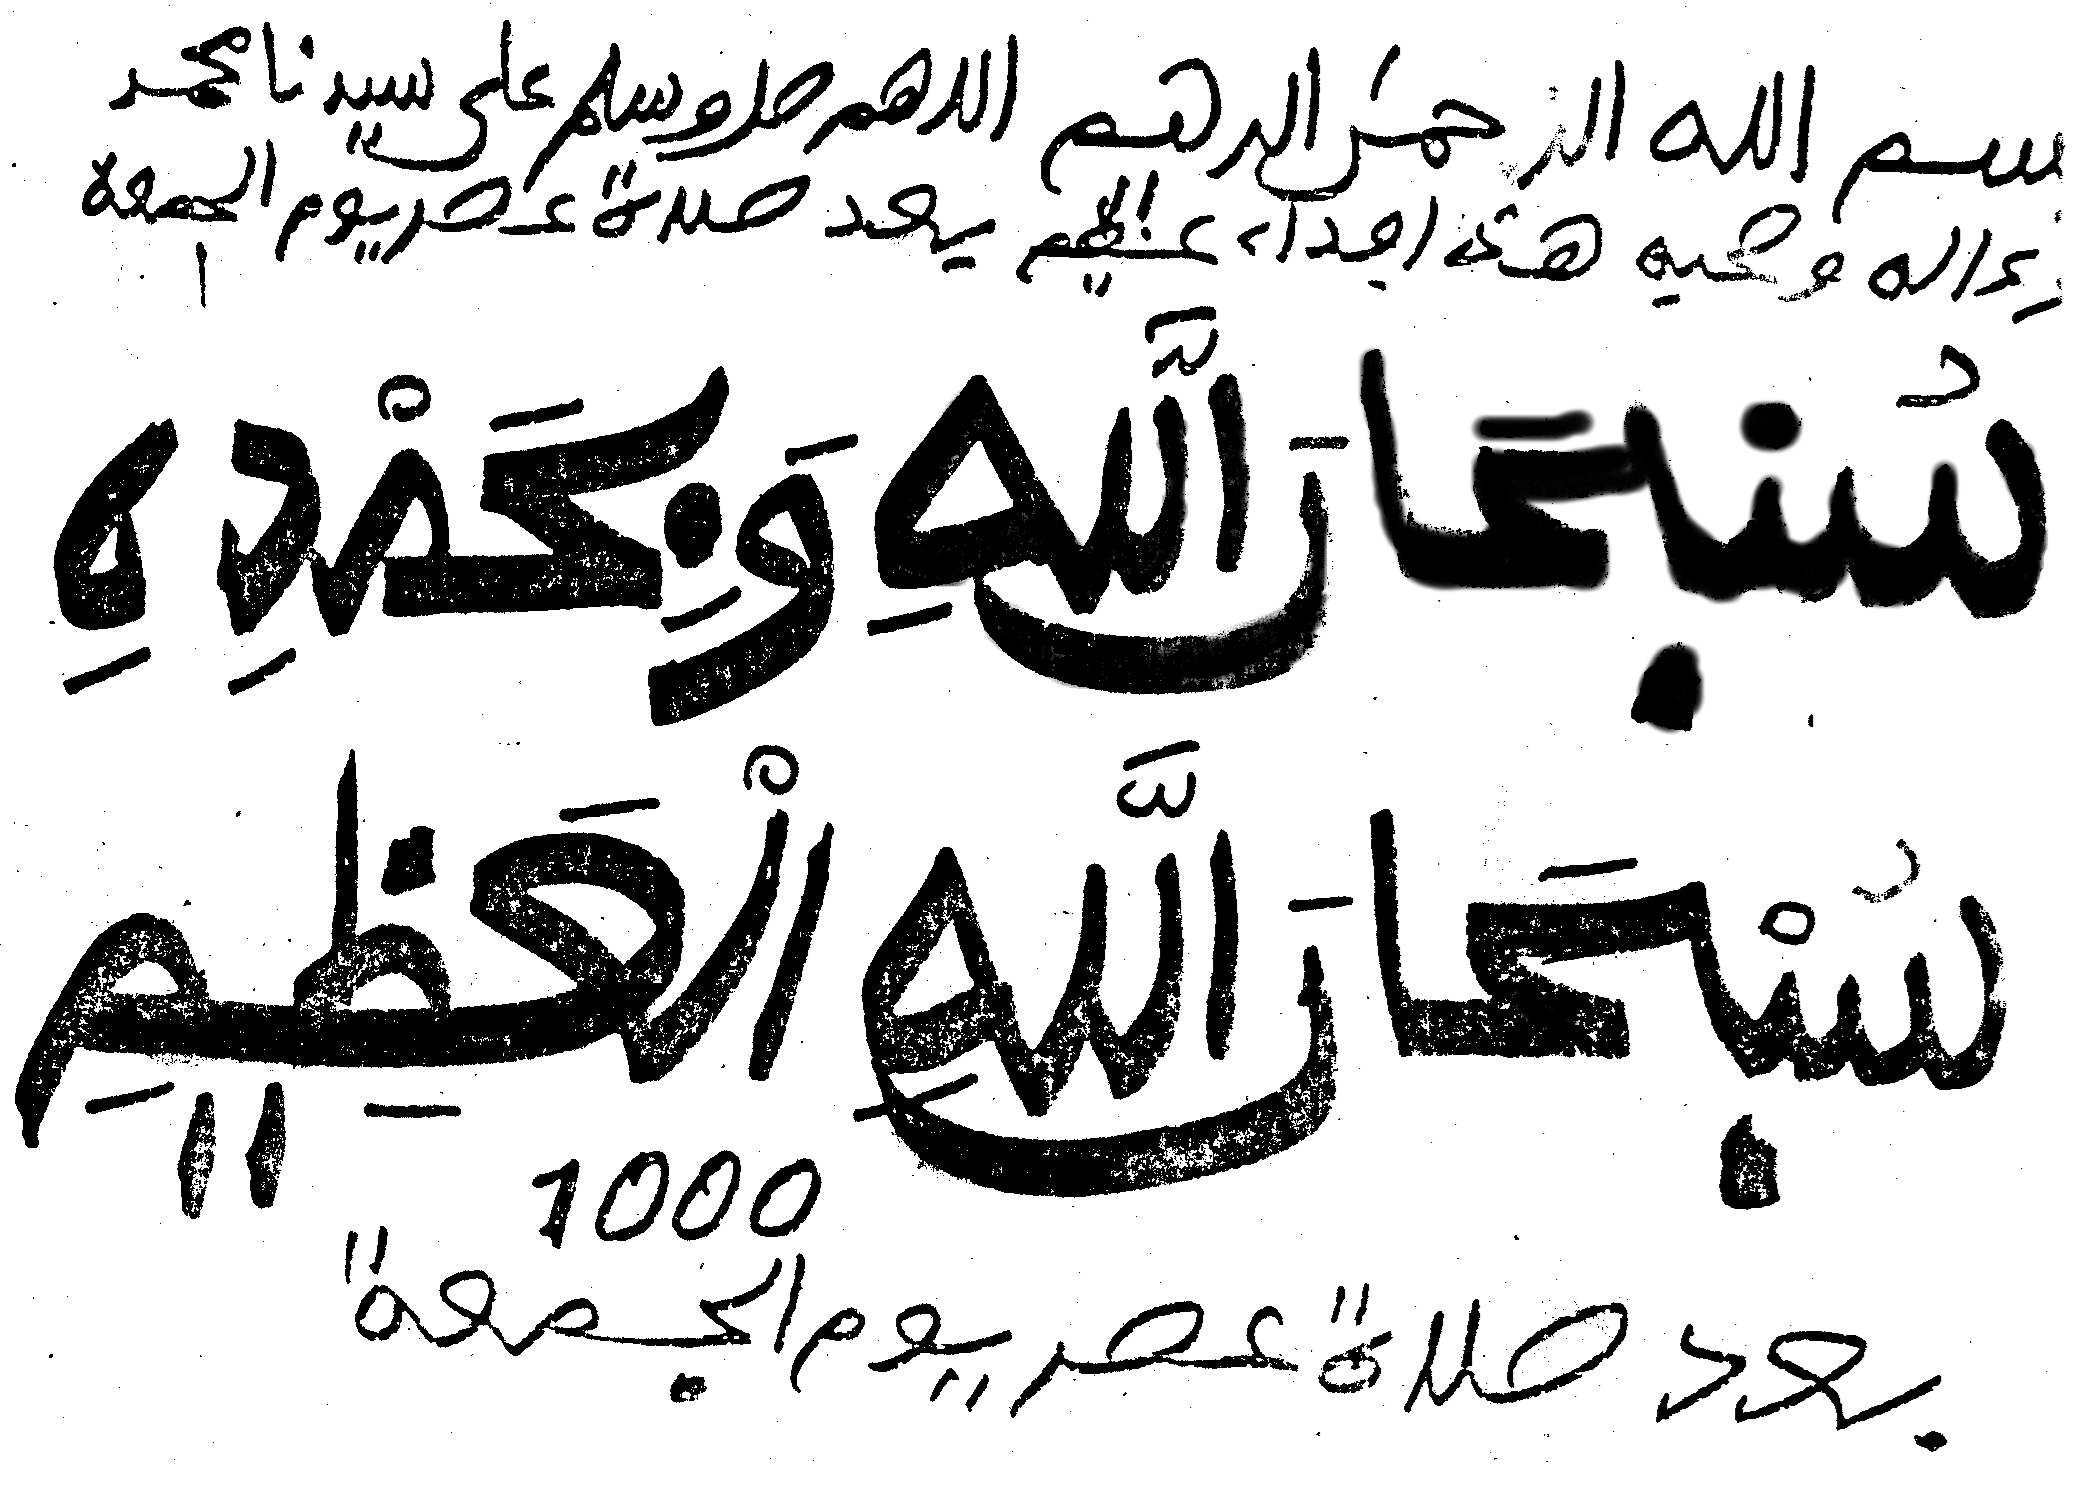 بسم الله الرحمن الرحيم اللهم صل وسلم على سيدنا محمد
وعلى اله وصحبه هذه اجداء عظيم بعد صلاة عصر يوم الجمعة
سُبْحَانَ اللَّهِ وَبِحَمْدِهِ
سُبْحَانَ اللَّهِ الْعَظِيمِ
1000
بعد صلاة عصر يوم الجمعة